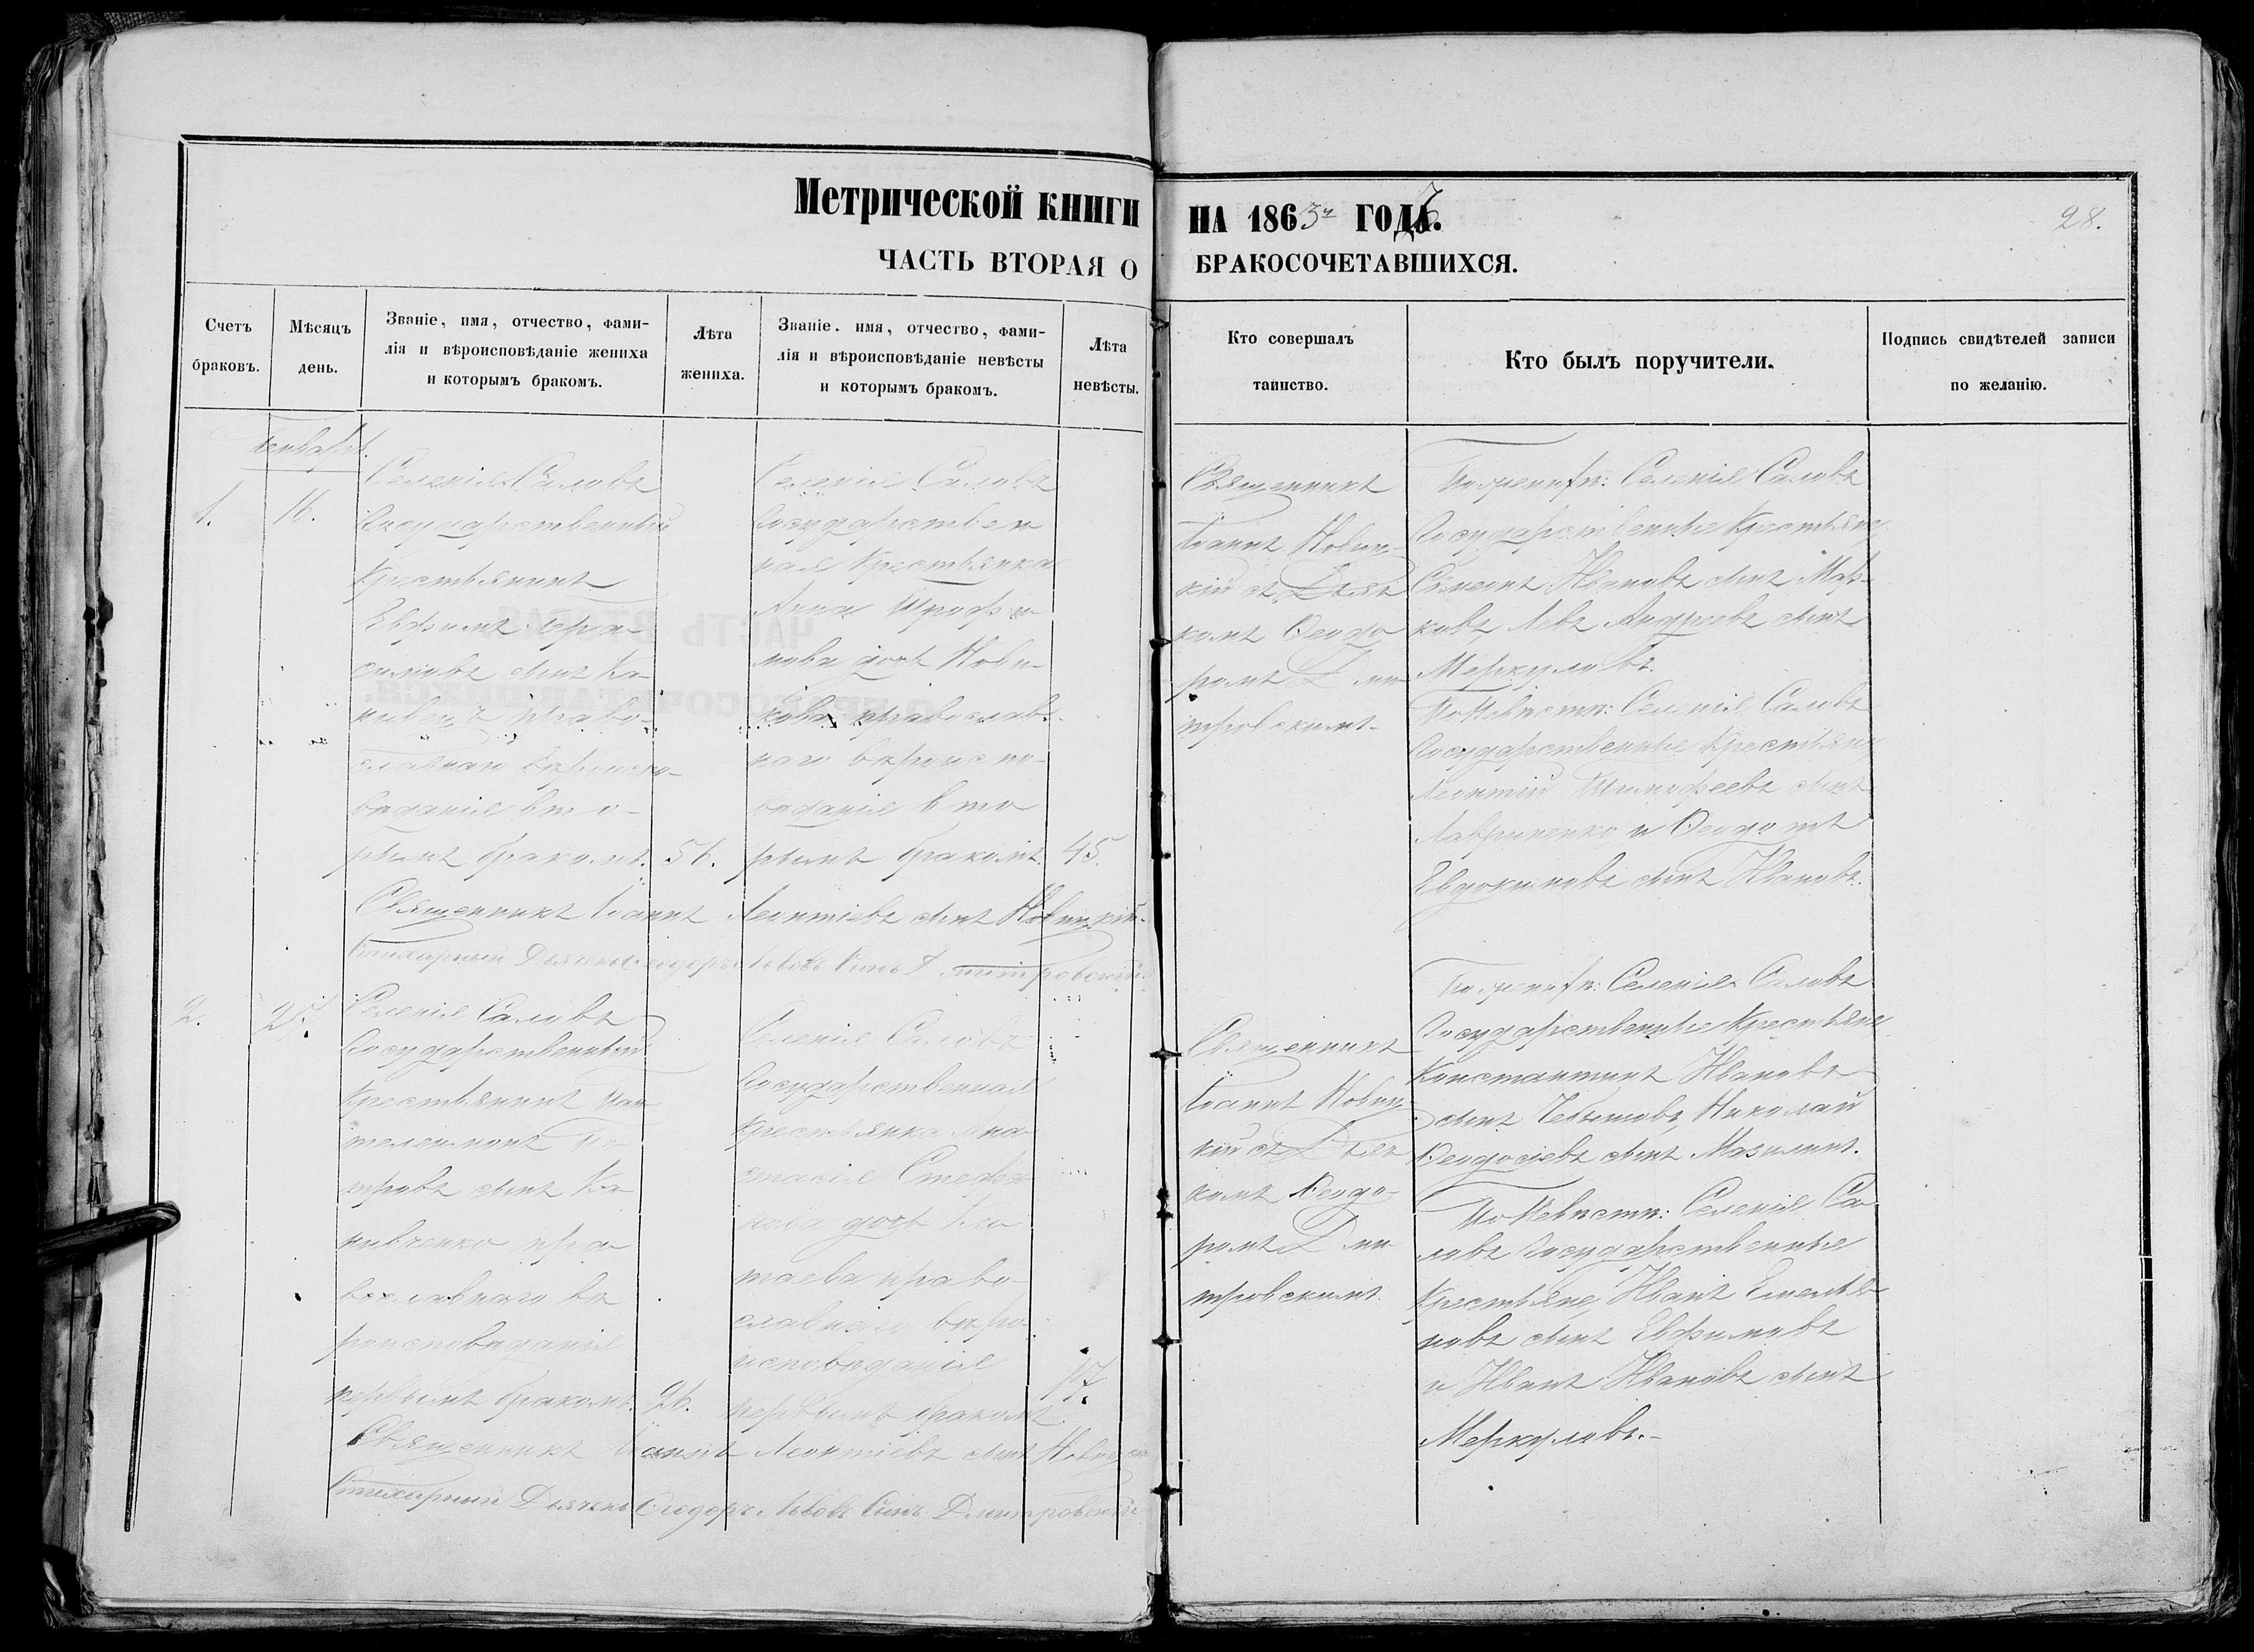 Метрической книги НА 1863го ГОДА.
28.
ЧАСТЬ ВТОРАЯ О БРАКОСОЧЕТАВШИХСЯ.
Счетъ
браковъ.
Мѣсяцъ
день.
Званіе, имя, отчество, фами-
лія и вѣроисповѣданіе жениха
и которымъ бракомъ.
Лѣта
жениха.
Званіе. имя, отчество, фами-
лія и вѣроисповѣданіе невѣсты
и которымъ бракомъ.
Лѣта
невѣсты.
Кто совершалъ
таинство.
Кто былъ поручители.
Подпись свидѣтелей записи
по желанію.
Январь.
1.
16.
Селенія Саловъ
Государственный
Крестьянинъ
Евфимъ Гера-
симовъ сынъ Ка-
нивецъ право-
славнаго вѣроиспо-
вѣданія вто-
рымъ бракомъ.
51.
Селенія Саловъ
Государствен
ная Крестьянка
Анна Трофи
мова дочь Нови-
кова православ-
наго вѣроиспо-
вѣданія вто
рымъ бракомъ.
45.
Священникъ
Іоаннъ Новиц-
кій съ Дьяч
комъ Ѳеодо
ромъ Дми
тровскимъ.
По женихѣ: Селенія Саловъ
Государственные Крестьяне
Симеонъ Ивановъ сынъ Мар-
ковъ Левъ Андреевъ сынъ
Меркуловъ.
По Невѣстѣ: Селенія Саловъ
Государственные Крестьяне
Леонтій Тимофеевъ сынъ
Лавриненко и Ѳеодотъ
Евдокимовъ сынъ Ивановъ.
Священникъ Іоаннъ Леонтіевъ сынъ Новицкій.
Стихарный Дьячекъ Ѳеодоръ Львовъ Сынъ Дмитровскій
2.
27.
Селенія Саловъ
Государственный
Крестьянинъ Пан
телеимонъ Пе
тровъ сынъ Ка-
нивченко пра
вославнаго вѣ
роисповѣданія
первымъ бракомъ.
26.
Селенія Саловъ
Государственная
Крестьянка Ана
стасія Стефа
нова дочь
таева право-
славнаго вѣро-
исповѣданія
первымъ бракомъ.
17.
Священникъ
Іоаннъ Новиц-
кій съ Дьяч
комъ Ѳеодо-
ромъ Дми
тровскимъ.
По женихѣ: Селенія Саловъ
Государственные Крестьяне
Константинъ Ивановъ
сынъ Николай
Ѳеодосіевъ сынъ Мазилинъ.
По Невѣстѣ: Селенія Са
ловъ Государственные
Крестьяне Иванъ Емелья
новъ сынъ Евфимовъ
и Иванъ Ивановъ сынъ
Меркуловъ.-
Священникъ Іоаннъ Леонтіевъ сынъ Новицкій
Стихарный Дьячекъ Ѳеодоръ Львовъ Сынъ Дмитровскій